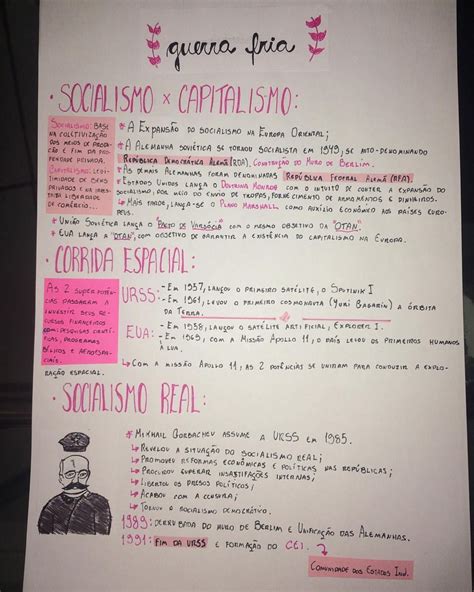 guerra fria
• SOCIALISMO x CAPITALISMO:
SOCIALISMO: BASE
NA COLETIVIZAÇÃO
DOS MEIOS DE PRODU-
ÇÃO E FIM DA PRO-
PRIEDADE PRIVADA.
CAPITALISMO: LEGI-
TIMIDADE DE BENS
PRIVADOS E NA
LIBERDADE
DE COMÉRCIO...
* A EXPANSÃO DO SOCIALISMO NA EUROPA ORIENTAL;
* A ALEMANHA SOVIÉTICA SE TORNOU SOCIALISTA EM 1949, SE AUTO-DENOMINANDO
REPÚBLICA DEMOCRÁTICA ALEMÃ (RDA). CONSTRUÇÃO DO MURO DE BERLIM.
* AS DEMAIS ALEMANHAS FORAM DENOMINADAS REPÚBLICA FEDERAL ALEMÃ (RFA).
* ESTADOS UNIDOS LANÇA O DOUTRINA MONROE COM O INTUITO DE CONTER A EXPANSÃO DO
SOCIALISMO, POR MEIO DO ENVIO DE TROPAS, FORNECIMENTO DE ARMAMENTOS E DINHEIROS.
↳ MAIS TARDE, LANÇA-SE O PLANO MARSHALL COMO AUXÍLIO ECONÔMICO AOS PAÍSES EURO-
PEUS.
* UNIÃO SOVIÉTICA LANÇA O "PACTO DE VARSÓVIA" COM O MESMO OBJETIVO DA "OTAN".
* EUA LANÇA A "OTAN", COM OBJETIVO DE GARANTIR A EXISTÊNCIA DO CAPITALISMO NA EUROPA.
• CORRIDA ESPACIAL:
AS 2 SUPER POTÊN-
CIAS PASSARAM A
INVESTIR SEUS RE-
CURSOS FINANCEIROS
COM: PESQUISAS CIENTÍ-
FICAS, PROGRAMAS
BÉLICOS E AEROESPA-
CIAIS.
URSS: - EM 1957, LANÇOU O PRIMEIRO SATÉLITE, O SPUTINIK I
- EM 1961, LEVOU O PRIMEIRO COSMONAUTA (YURI GAGARIN) A ÓRBITA
DA TERRA.
EUA: - EM 1958, LANÇOU O SATÉLITE ARTIFICIAL, EXPLORE I.
- EM 1969, COM A MISSÃO APOLLO 11, O PAÍS LEVOU OS PRIMEIROS HUMANOS
À LUA.
↳ COM A MISSÃO APOLLO 11, AS 2 POTÊNCIAS SE UNIRAM PARA CONDUZIR A EXPLO-
RAÇÃO ESPACIAL.
• SOCIALISMO REAL:
* MIKHAIL GORBACHEV ASSUME A URSS EM 1985.
↳ REVELOU A SITUAÇÃO DO SOCIALISMO REAL;
↳ PROMOVEU REFORMAS ECONÔMICAS E POLÍTICAS NAS REPÚBLICAS;
↳ PROCUROU SUPERAR INSATISFAÇÕES INTERNAS;
↳ LIBERTOU OS PRESOS POLÍTICOS;
↳ ACABOU COM A CENSURA;
↳ TORNOU O SOCIALISMO DEMOCRÁTICO.
1989: DERRUBADA DO MURO DE BERLIM E UNIFICAÇÃO DAS ALEMANHAS.
1991: FIM DA URSS E FORMAÇÃO DO CEI.
COMUNIDADE DOS ESTADOS IND.